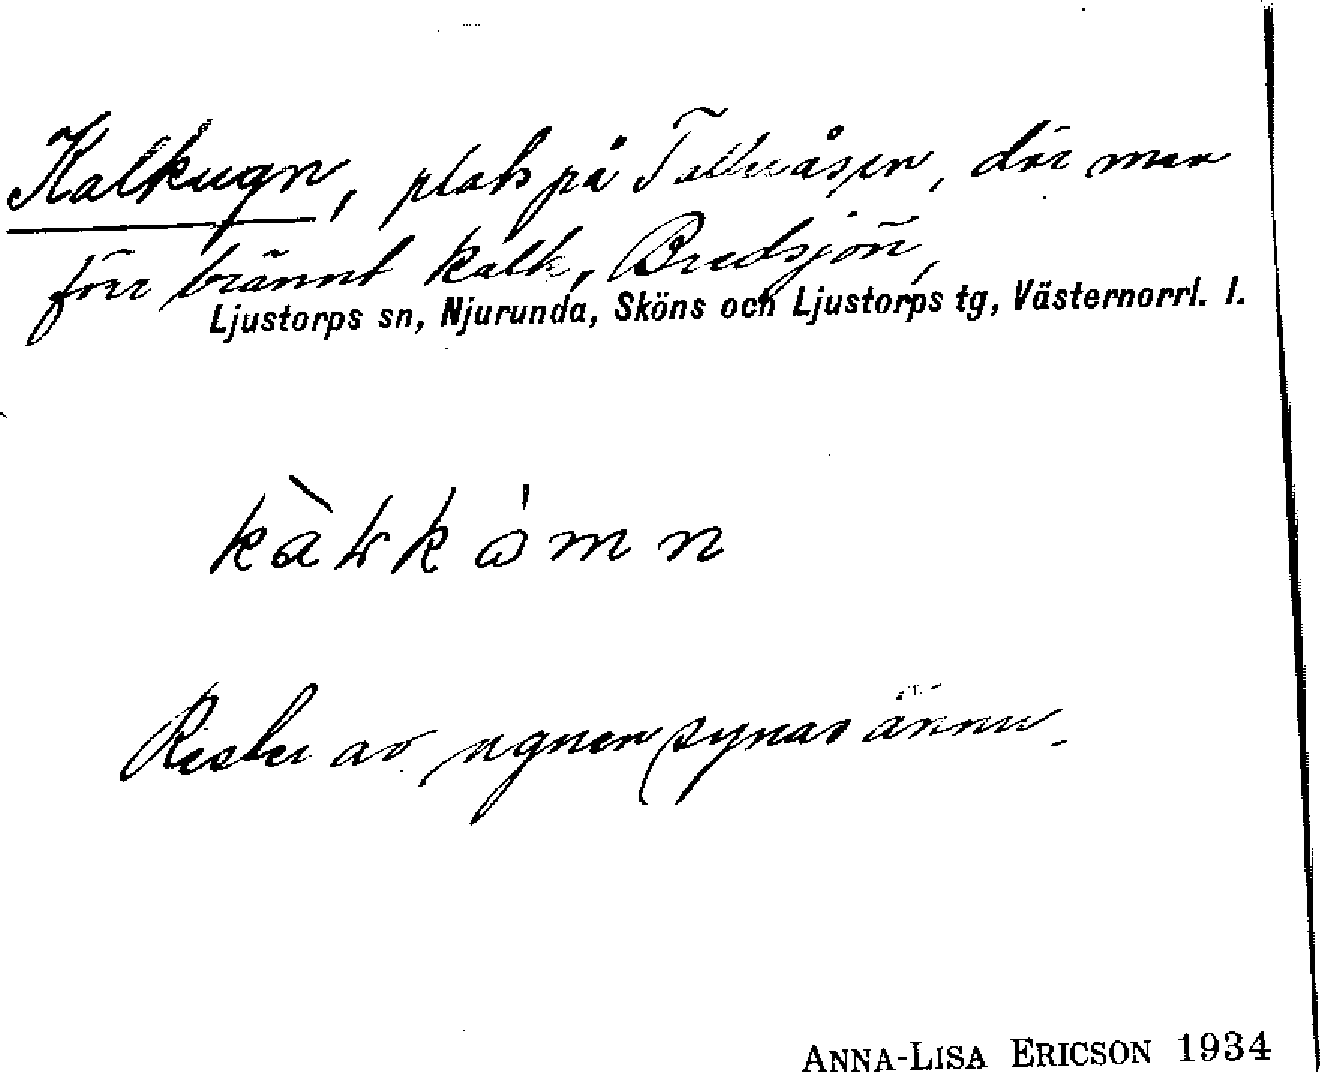 Kalkugn, plats på Tallåsen, där man
förr bränt kalk, Bredsjön,
Ljustorps sn, Njurunda, Sköns och Ljustorps tg, Västernorrl. l.
Rester av ugnen synas ännu.
ANNA-LISA ERICSON 1934